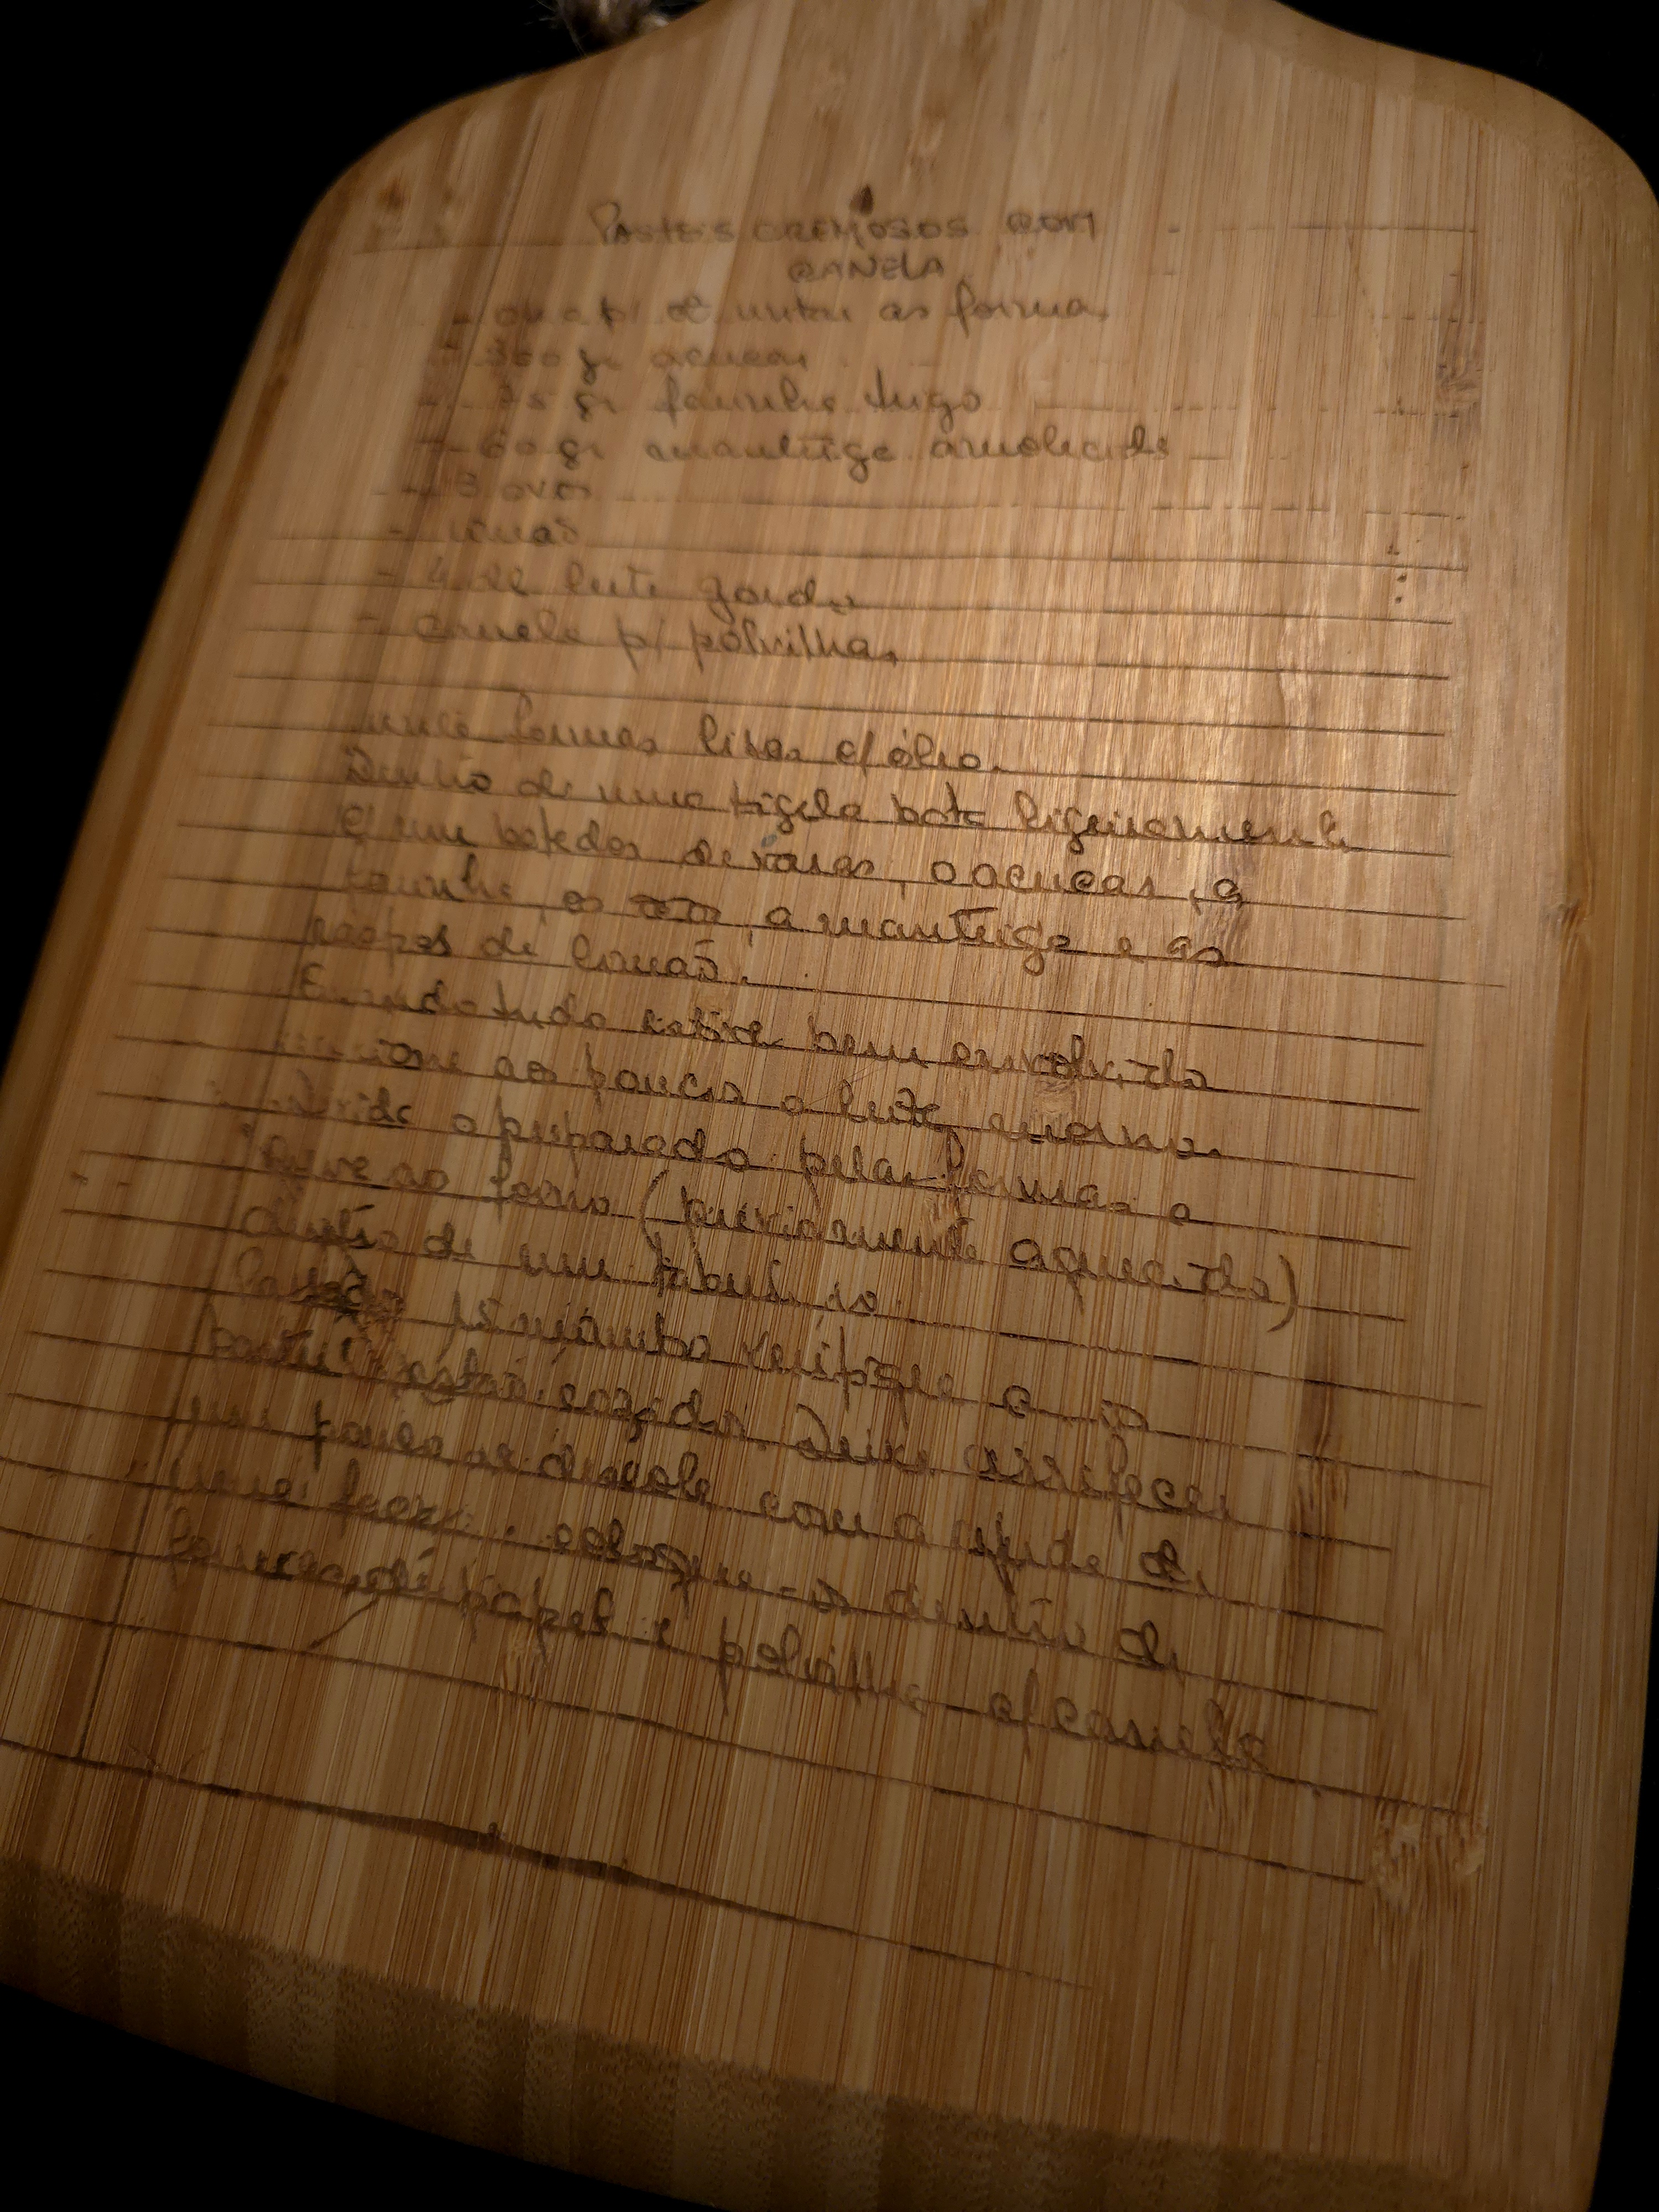 PASTEIS CREMOSOS COM
CANELA
- p/ untar as formas
- 300 gr açucar
- 75 gr farinha trigo
- 60 gr manteiga amolecida
- 3 ovos
- limão
- 4 dl leite gordo
- canela p/ polvilhar
unte formas lisas c/ óleo.
Dentro de uma tigela bata ligeiramente
c/ um batedor de varas, o açucar, a
farinha, os a manteiga e as
raspas de limão.
Quando tudo estiver bem envolvido
ao poucos o leite morno.
divida o preparado pelas formas e
leve ao forno (previamente aquecido)
dentro de um tabuleiro.
15 minutos verifique se os
pasteis estão cozidos. Deixe arrefecer
um pouco e desenforme com a ajuda de
uma faca. coloque-os dentro de
formas de papel e polvilhe c/ canela